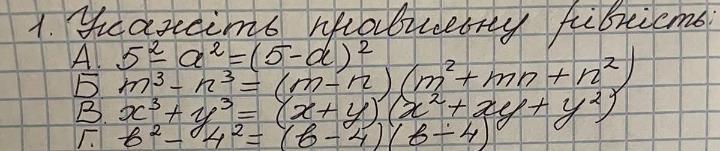 1. Укажіть правильну рівність:
А. 5² - a² = (5-a)²
Б m³ - n³ = (m-n)(m² + mn + n²)
В. x³ + y³ = (x+y)(x² + xy + y²)
Г. b² - 4² = (b-4)(b-4)